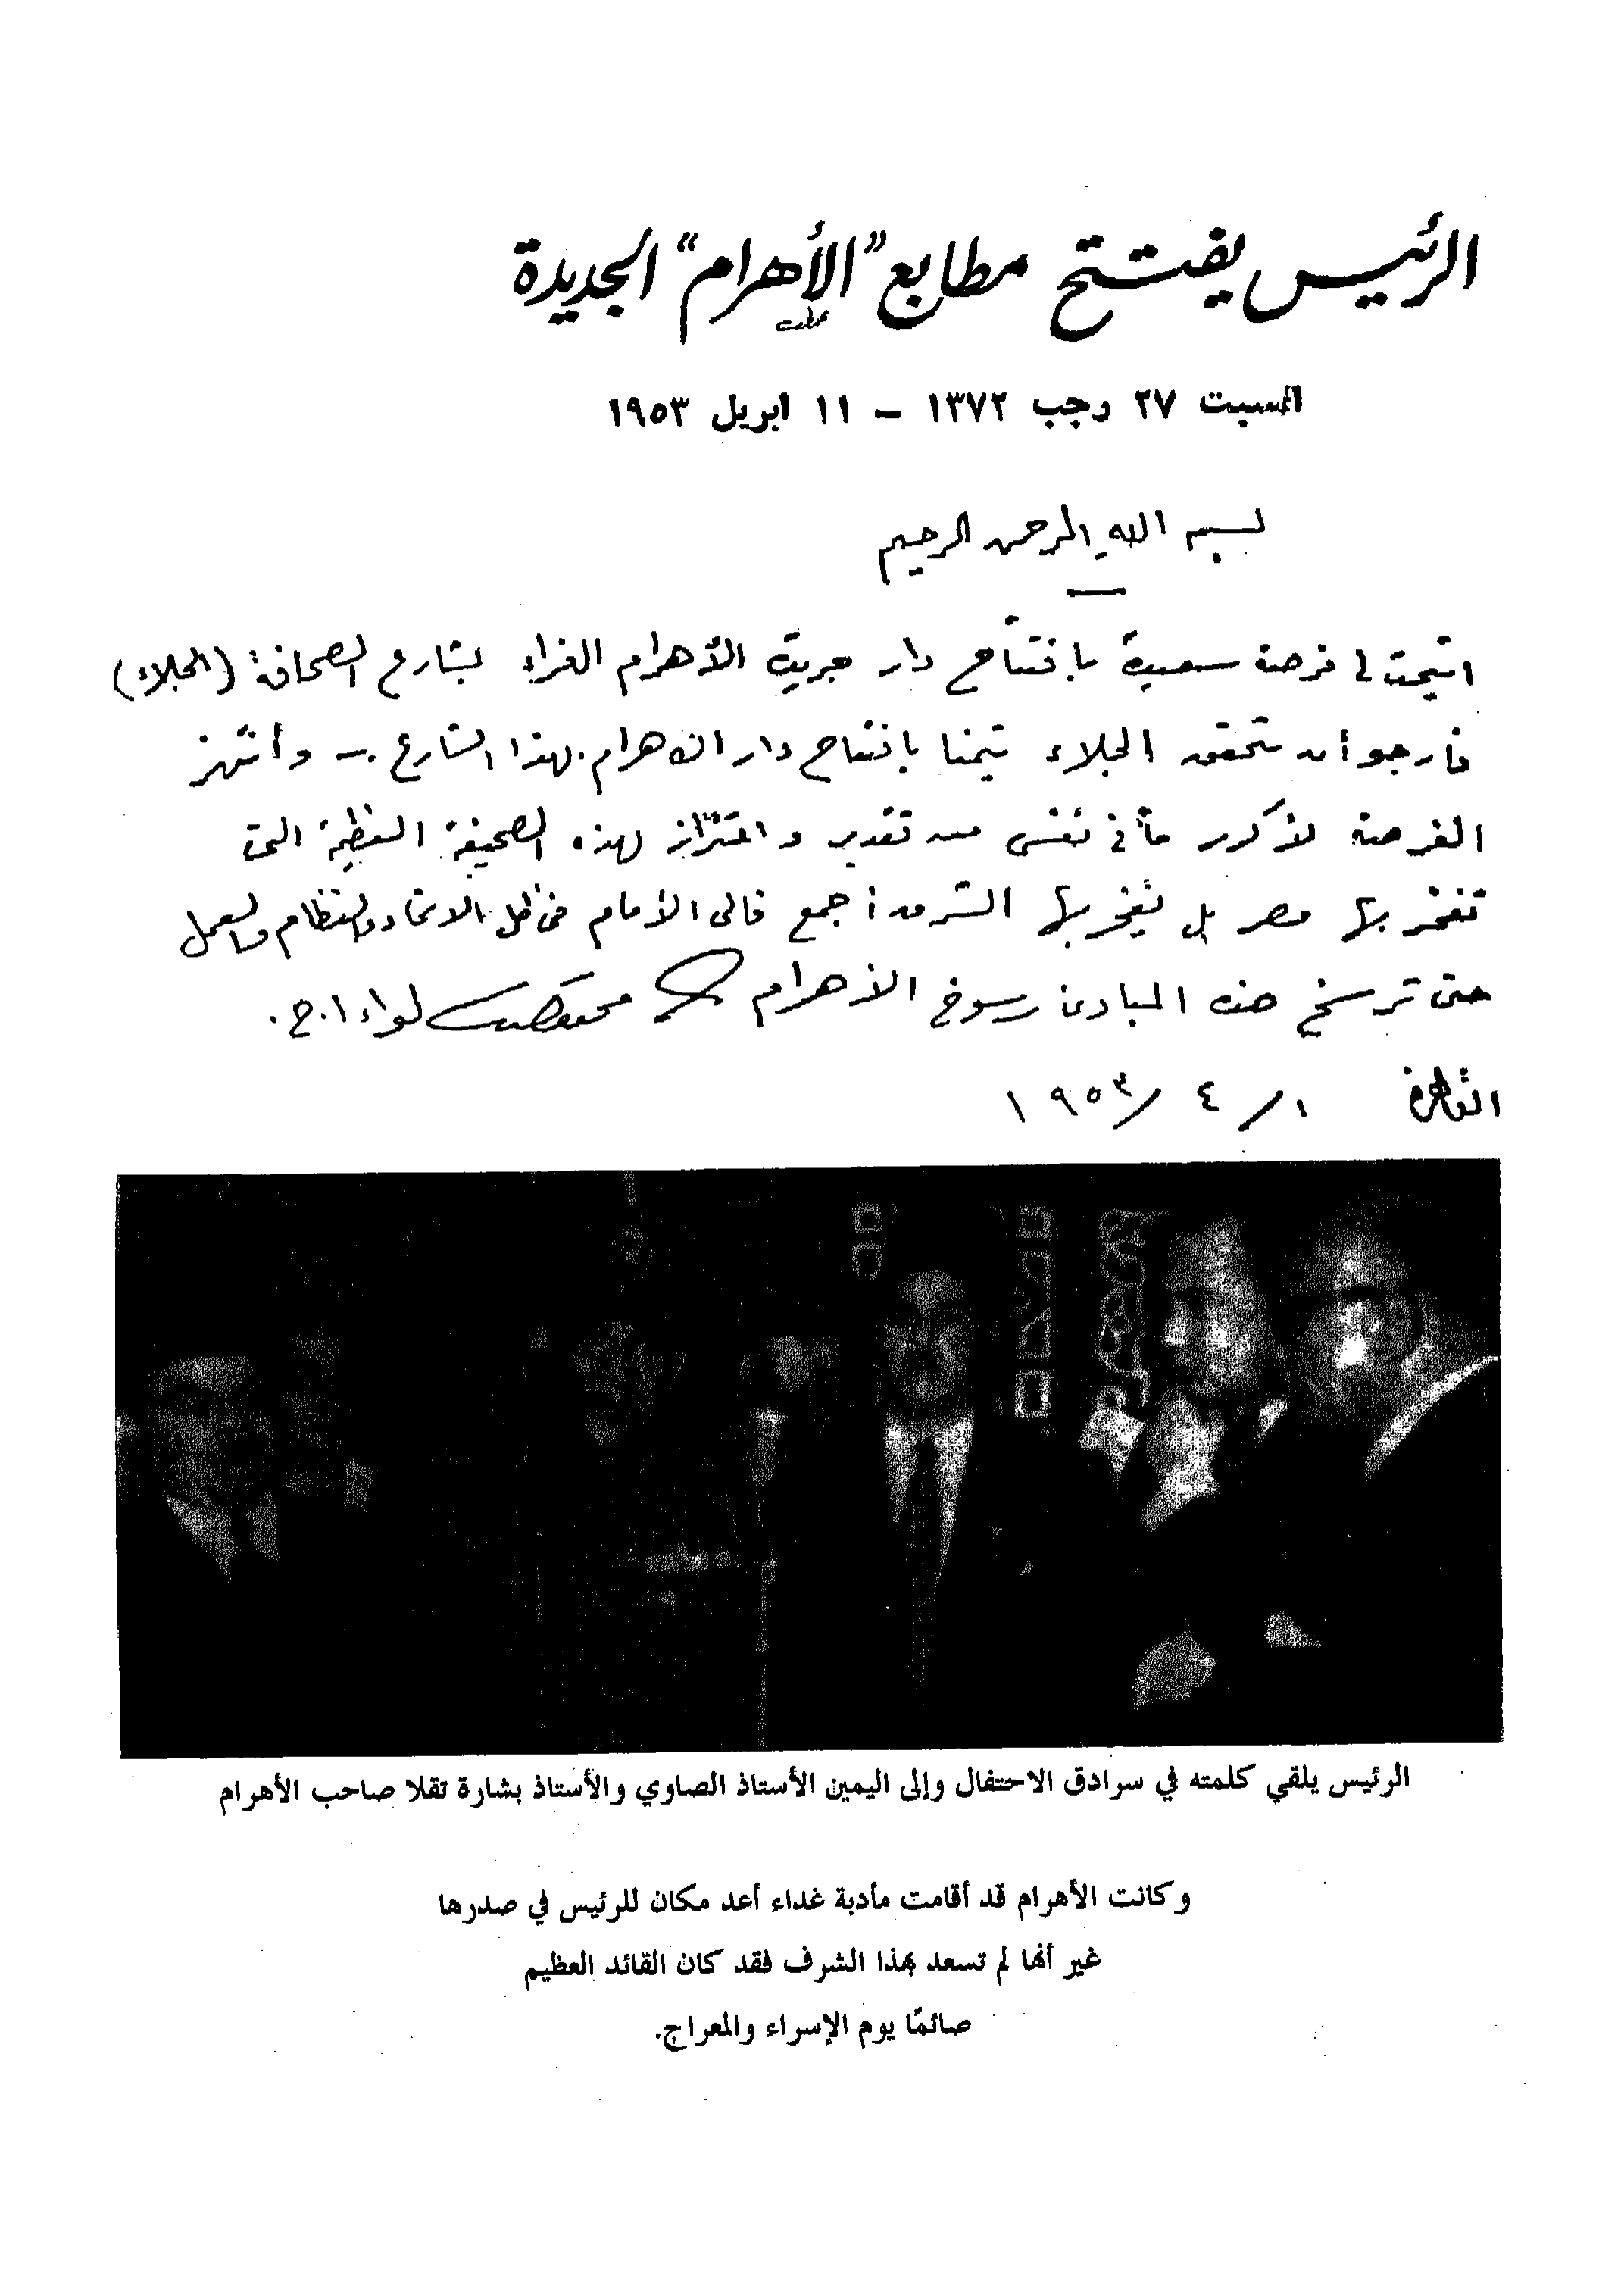 الرئيس يفتتح مطابع "الأهرام" الجديدة
السبت ٢٧ رجب ١٣٧٢ – ١١ ابريل ١٩٥٣
بسم الله الرحمن الرحيم
اتيحت لى فرصة سعيدة بافتتاح دار جريدة الأهرام الغراء بشارع الصحافة (الجلاء)
فأرجو أن يتحقق الجلاء تيمنا بافتتاح دار الاهرام بهذا الشارع . – وأنتهز
الفرصة لأكرر ما فى نفسى من تقدير واعتزاز بهذه الصحيفة العظيمة التى
تفخر بها مصر بل يفخر بها الشرق أجمع فالى الأمام فى ظل الاتحاد والنظام والعمل
حتى ترسخ هذه المبادئ رسوخ الأهرام لواء ا.ح.
القاهرة ٤ / ١٩٥٣
الرئيس يلقي كلمته في سرادق الاحتفال وإلى اليمين الأستاذ الصاوي والأستاذ بشارة تقلا صاحب الأهرام
وكانت الأهرام قد أقامت مأدبة غداء أعد مكان للرئيس في صدرها
غير أنها لم تسعد بهذا الشرف فقد كان القائد العظيم
صائمًا يوم الإسراء والمعراج.